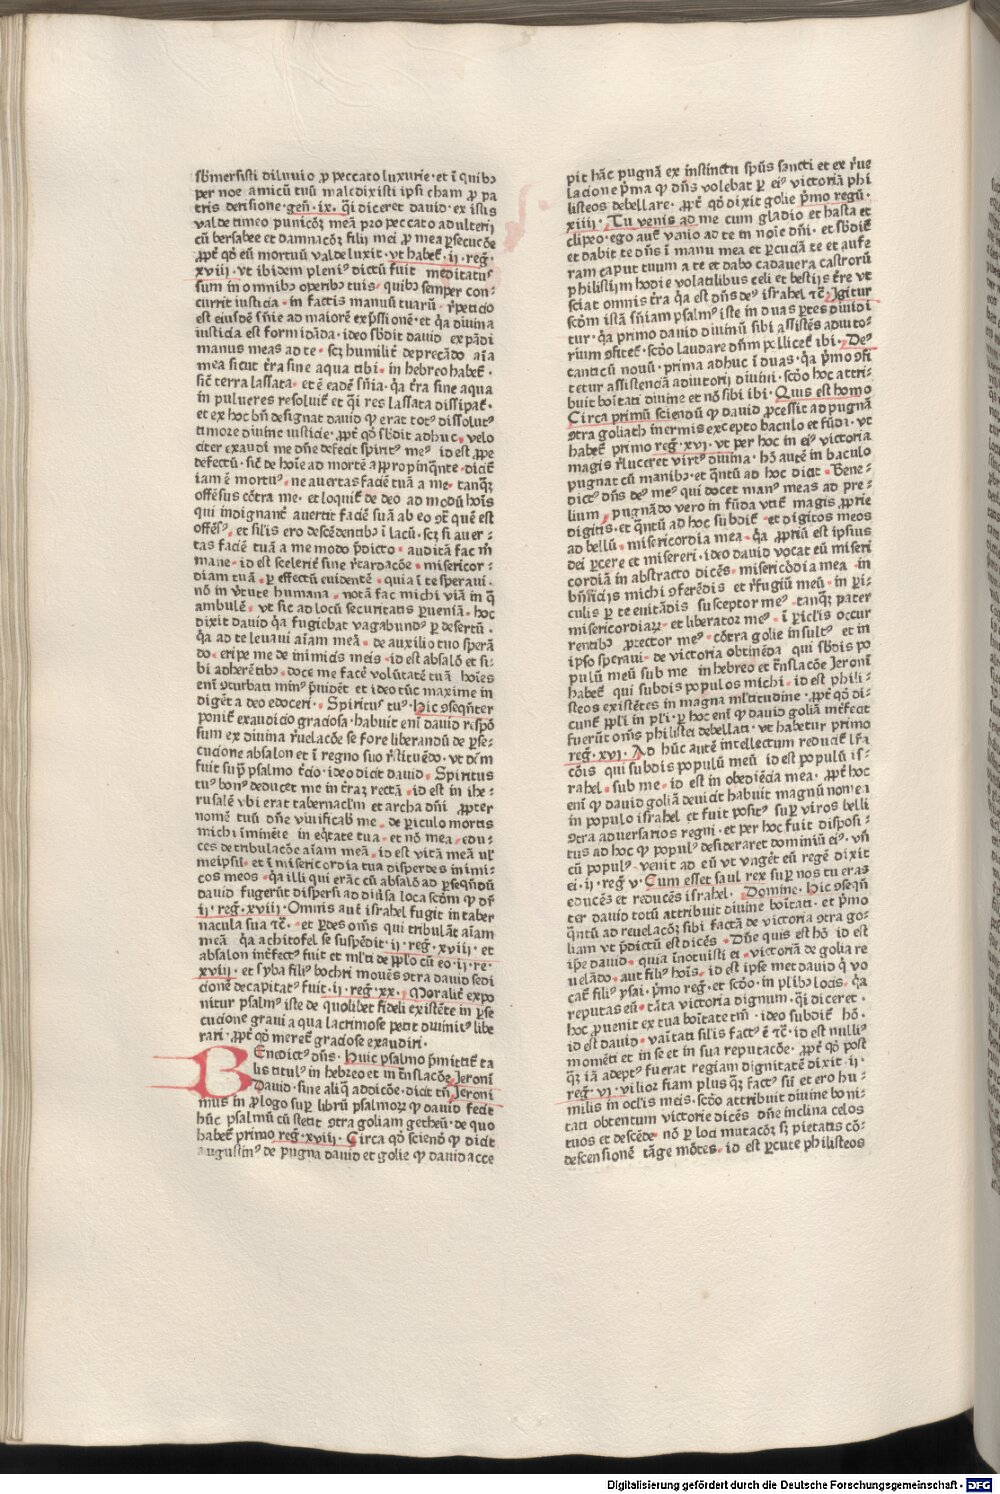 sb̄mersisti diluuio ꝓ peccato luxurie · et ī quibꝫ
per noe amicū tuū maledixisti ipsi cham ꝓ pa
tris derisione · gen̄ · ix · q̄si diceret dauid · ex istis
valde timeo puniēdꝫ meā pro peccato adulterij
cū bersabee et damnacōꝫ filij mei ꝓ mea ꝑsecucōe
ꝓpt̄ qd̄ eū mortuū valde luxit · vt habet̄ · ij · reg̃ ·
xviij · vt ibidem pleniꝰ dictū fuit meditatus
sum in omnibꝫ operibꝫ tuis · quibꝫ semper con⸗
currit iusticia · in factis manuū tuarū · r̄peticio
est eiusdē s̄nie ad maiorē exp̄ssionē · et q̄a diuina
iusticia est formidāda · ideo sb̄dit dauid expādi
manus meas ad te · scꝫ humilit̄ deprecādo aīa
mea sicut t̄ra sine aqua tibi · in hebreo habet̄ ·
sic̄ terra lassata · et ē eadē s̄nia · q̄a t̄ra sine aqua
in pulueres resoluit̄ et q̄si res lassata dissipat̄ ·
et ex hoc bn̄ designat dauid ꝙ erat totꝰ dissolutꝰ
timore diuine iusticie · ꝓpt̄ qd̄ sb̄dit adhuc · velo
citer exaudi me dn̄e defecit spiritꝰ meꝰ id est ꝓpe
defectū · sic̄ de hoīe ad mortē appropinq̄nte · dicit̄
iam ē mortuꝰ · ne auertas faciē tuā a me · tanq̄ꝫ
offēsus cōtra me · et loquit̄ de deo ad modū hoīs
qui indignant̄ auertit faciē suā ab eo ꝯt̄ quē est
offēsꝰ · et silis ero descēdentibꝫ ī lacū · scꝫ si auer⸗
tas faciē tuā a me modo p̄dicto · auditā fac m̄
mane · id est scelerit̄ sine r̄tardacōe · misericor⸗
diam tuā · ꝑ effectū euidentē · quia ī te speraui ·
nō in v̄tute humana · notā fac michi viā in q̄
ambulē · vt sic ad locū securitatis ꝑueniā · hoc
dixit dauid q̄a fugiebat vagabundꝰ ꝑ desertū ·
q̄a ad te leuaui aīam meā · de auxilio tuo sperā
do · eripe me de inimicis meis · id est absalō et si⸗
bi adherētibꝫ · doce me facē volūtatē tuā hoīes
enī ꝯturbati minꝰ p̄uidēt et ideo tūc maxime in
digēt a deo edoceri · Spiritus tuꝰ · Hic ꝯseqn̄ter
ponit̄ exaudicio graciosa · habuit enī dauid respō
sum ex diuina r̄uelacōe se fore liberandū de ꝑse⸗
cucione absalon et ī regno suo r̄stituēdo · vt dc̄m
fuit sup̄ psalmo t̄cio · ideo dicit dauid · Spiritus
tuꝰ bonꝰ deducet me in t̄raꝫ rectā · id est in ihe⸗
rusalē vbi erat tabernaclm̄ et archa dn̄i ꝓpter
nomē tuū dn̄e viuificab̄ me · de ꝑiculo mortis
michi īminēte in eq̄tate tua · et nō mea · edu⸗
ces de tribulacōe aīam meā · id est vitā meā ul̄
meipsū · et ī misericordia tua disperdes inimi⸗
cos meos · q̄a illi qui erāt cū absalō ad ꝑseqn̄dū
dauid fugerūt dispersi ad diu̇sa loca scd̄m ꝙ dr̄
ij · reg̃ · xviij · Omnis aut̄ israhel fugit in taber
nacula sua tc̄ · et ꝑdes omēs qui tribulāt aīam
meā q̄a achitofel se suspēdit · ij · reg̃ · xviij · et
absalon int̄fectꝰ fuit et ml̄ti de ꝓpl̄o cū eo · ij · re ·
xviij · et syba filiꝰ bochri mouēs ꝯtra dauid sedi
cionē decapitatꝰ fuit · ij · reg̃ · xx · Moralit̄ expo
nitur psalmꝰ iste de quolibet fideli existēte in ꝑse
cucione graui a qua lacrimose petit diuinitꝰ libe
rari · ꝓpt̄ qd̄ meret̄ graciose exaudiri ·
BEnedictꝰ dn̄s · Huic psalmo p̄mittit̄ ta
lis titulꝰ in hebreo et in t̄nslacōe Jeronī
Dauid · sine aliq̄ addicōe · dicit tn̄ Jeroni
mus in ꝓlogo suꝑ librū psalmoꝝ ꝙ dauid fecit
hūc psalmū cū stetit ꝯtra goliam getheū · de quo
habet̄ primo reg̃ · xviij · Circa qd̄ sciend̄ ꝙ dicit
augustinꝰ de pugna dauid et golie ꝙ dauid acce
pit hāc pugnā ex īnstinctu spūs sancti et ex r̄ue
lacione p̄ma ꝙ dn̄s volebat ꝑ eiꝰ victoriā phi
listeos debellare · ꝓpt̄ qd̄ dixit golie p̄mo regū ·
xiiij · Tu venis ad me cum gladio et hasta et
clipeo · ego aut̄ venio ad te in noīe dn̄i · et sb̄dit̄
et dabit te dn̄s ī manu mea et ꝑcuciā te et aufe
ram caput tuum a te et dabo cadauera castrorū
philistijm hodie volatilibus celi et bestijs t̄re vt
sciat omnis t̄ra q̄a est dn̄s deꝰ israhel tc̄ · Igitur
scd̄m istā s̄niam psalmꝰ iste in duas ꝑtes diuidi
tur · q̄a primo dauid diuinū sibi assistēs adiuto⸗
rium ꝯfitet̄ · scd̄o laudare dn̄m pollicet̄ ibi · Deꝰ
canticū nouū · prima adhuc ī duas · q̄a p̄mo ꝯfi
tetur assistenciā adiutorij diuini · scd̄o hoc attri⸗
buit boītati diuine et nō sibi ibi · Quis est homo
Circa primū sciendū ꝙ dauid ꝓcessit ad pugnā
ꝯtra goliath inermis excepto baculo et fūda · vt
habet̄ primo reg̃ · xvj · vt per hoc in eiꝰ victoria
magis r̄luceret virtꝰ diuina · hō autē in baculo
pugnat cū manibꝫ · et q̄ntū ad hoc dicit · Bene⸗
dictꝰ dn̄s deꝰ meꝰ qui docet manꝰ meas ad pre⸗
lium · pugnādo vero in fūda vtit̄ magis ꝓprie
digitis · et q̄ntū ad hoc subdit̄ · et digitos meos
ad bellū · misericordia mea · q̄a ꝓpriū est ipsius
dei ꝑcere et misereri · ideo dauid vocat eū miseri
cordiā in abstracto dicēs · misericordia mea · in
bn̄ficijs michi ꝯferēdis et r̄fugiū meū · in ꝑi⸗
culis ꝑ te euitādis susceptor meꝰ · tanq̄ꝫ pater
misericordiaꝝ · et liberator meꝰ · ī ꝑiclis occur
rentibꝫ ꝓtector meꝰ · cōtra golie insultꝰ et in
ipso speraui · de victoria obtinēda qui sb̄dis po
pulū meū sub me in hebreo et t̄nslacōe Jeronī
habet̄ qui subdis populos michi · id est phili⸗
steos existētes in magna ml̄titudine · ꝓpt̄ qd̄ di⸗
cunt̄ ppl̄i in pl̄i · ꝑ hoc enī ꝙ dauid goliā int̄fecit
fuerūt om̄s philistei debellati · vt habetur primo
reg̃ · xvj · Ad hūc autē intellectum reducit̄ lr̄a
cōis qui subdis populū meū id est populū is⸗
rahel · sub me · id est in obediēcia mea · ꝓpt̄ hoc
enī ꝙ dauid goliā deuicit habuit magnū nomen
in populo israhel et fuit positꝰ suꝑ viros belli
ꝯtra aduersarios regni · et per hoc fuit disposi⸗
tus ad hoc ꝙ populꝰ desideraret dominiū eiꝰ · vn̄
cū populꝰ venit ad eū vt vngēt eū regē dixit
ei · ij · reg̃ v · Cum esset saul rex suꝑ nos tu eras
educēs et reducēs israhel · Domine · Hic ꝯseqn̄
ter dauid totū attribuit diuine boītati · et p̄mo
q̄ntū ad reuelacōꝫ sibi factā de victoria ꝯtra go⸗
liam vt p̄dictū est dicēs · Dn̄e quis est hō id est
ipe dauid · quia īnotuisti ei · victoriā de golia re
uelādo · aut filiꝰ hoīs · id est ipse met dauid q̄ vo
cat̄ filiꝰ ysai · p̄mo reg̃ · et scd̄o · in pl̄ibꝫ locis · q̄a
reputas eū · tāta victoria dignum · q̄si diceret ·
hoc ꝓuenit ex tua boītate tm̄ · ideo subdit̄ hō ·
id est dauid · vaītati silis factꝰ ē tc̄ · id est nulliꝰ
momēti et in se et in sua reputacōe · ꝓpt̄ qd̄ post
q̄ꝫ iā adeptꝰ fuerat regiam dignitatē dixit · ij ·
reg̃ · vj · vilior fiam plus q̄ꝫ factꝰ sū et ero hu⸗
milis in oclis meis · scd̄o attribuit diuine boni⸗
tati obtentum victorie dicēs dn̄e inclina celos
tuos et descēde · nō ꝑ loci mutacōꝫ sꝫ pietatis cō⸗
descensionē tāge mōtes · id est ꝑcute philisteos
Digitalisierung gefördert durch die Deutsche Forschungsgemeinschaft · DFG